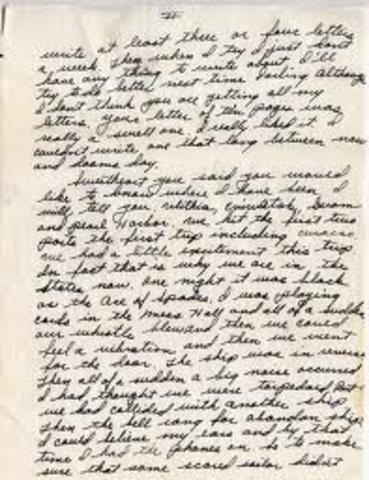 II
write at least three or four letters
a week. Then when I try I just don't
have any thing to write about I'll
try to do better next time Darling although
I don't think you are getting all my
letters. your letter of ten pages was
really a swell one. I really liked it. I
couldn't write one that long between now
and dooms day.
Sweetheart you said you would
like to know where I have been I
will tell you Ulithia, Eniwetok, Guam
and pearl Harbor we hit the first two
ports the first trip including
we had a little excitement this trip
In fact that is why we are in the
States now. One night it was black
as the Ace of Spades. I was playing
cards in the Mess Hall and all of a sudden
our whistle blew and then we could
feel a vibration and then we went
for the door. The ship was in reverse
Then all of a sudden a big noise occurred
I had thought we were torpedoed But
we had collided with another ship
Then the bell rang for abandon ship
I could believe my ears and by that
time I had the phones on to make
sure that some scared sailor didn't